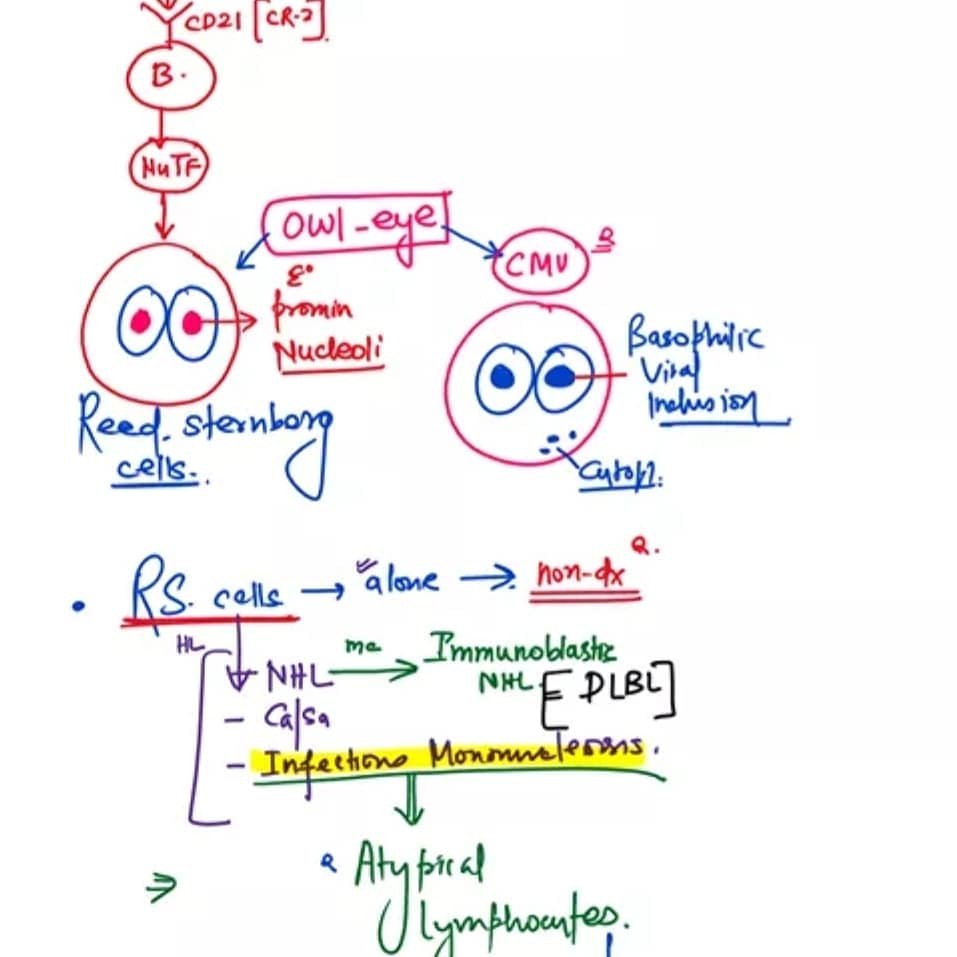 CD21 [CR-2].
B.
NuTF
Owl-eye
CMV
promin
Nucleoli
Basophilic
Viral
Inclusion
Reed. sternberg
cells.
Cytopl.
RS. cells → alone → non-dx
HL
NHL → Immunoblastic
NHL [= DLBL]
- Ca/sa
- Infectious Mononucleosis.
Atypical
lymphocytes.